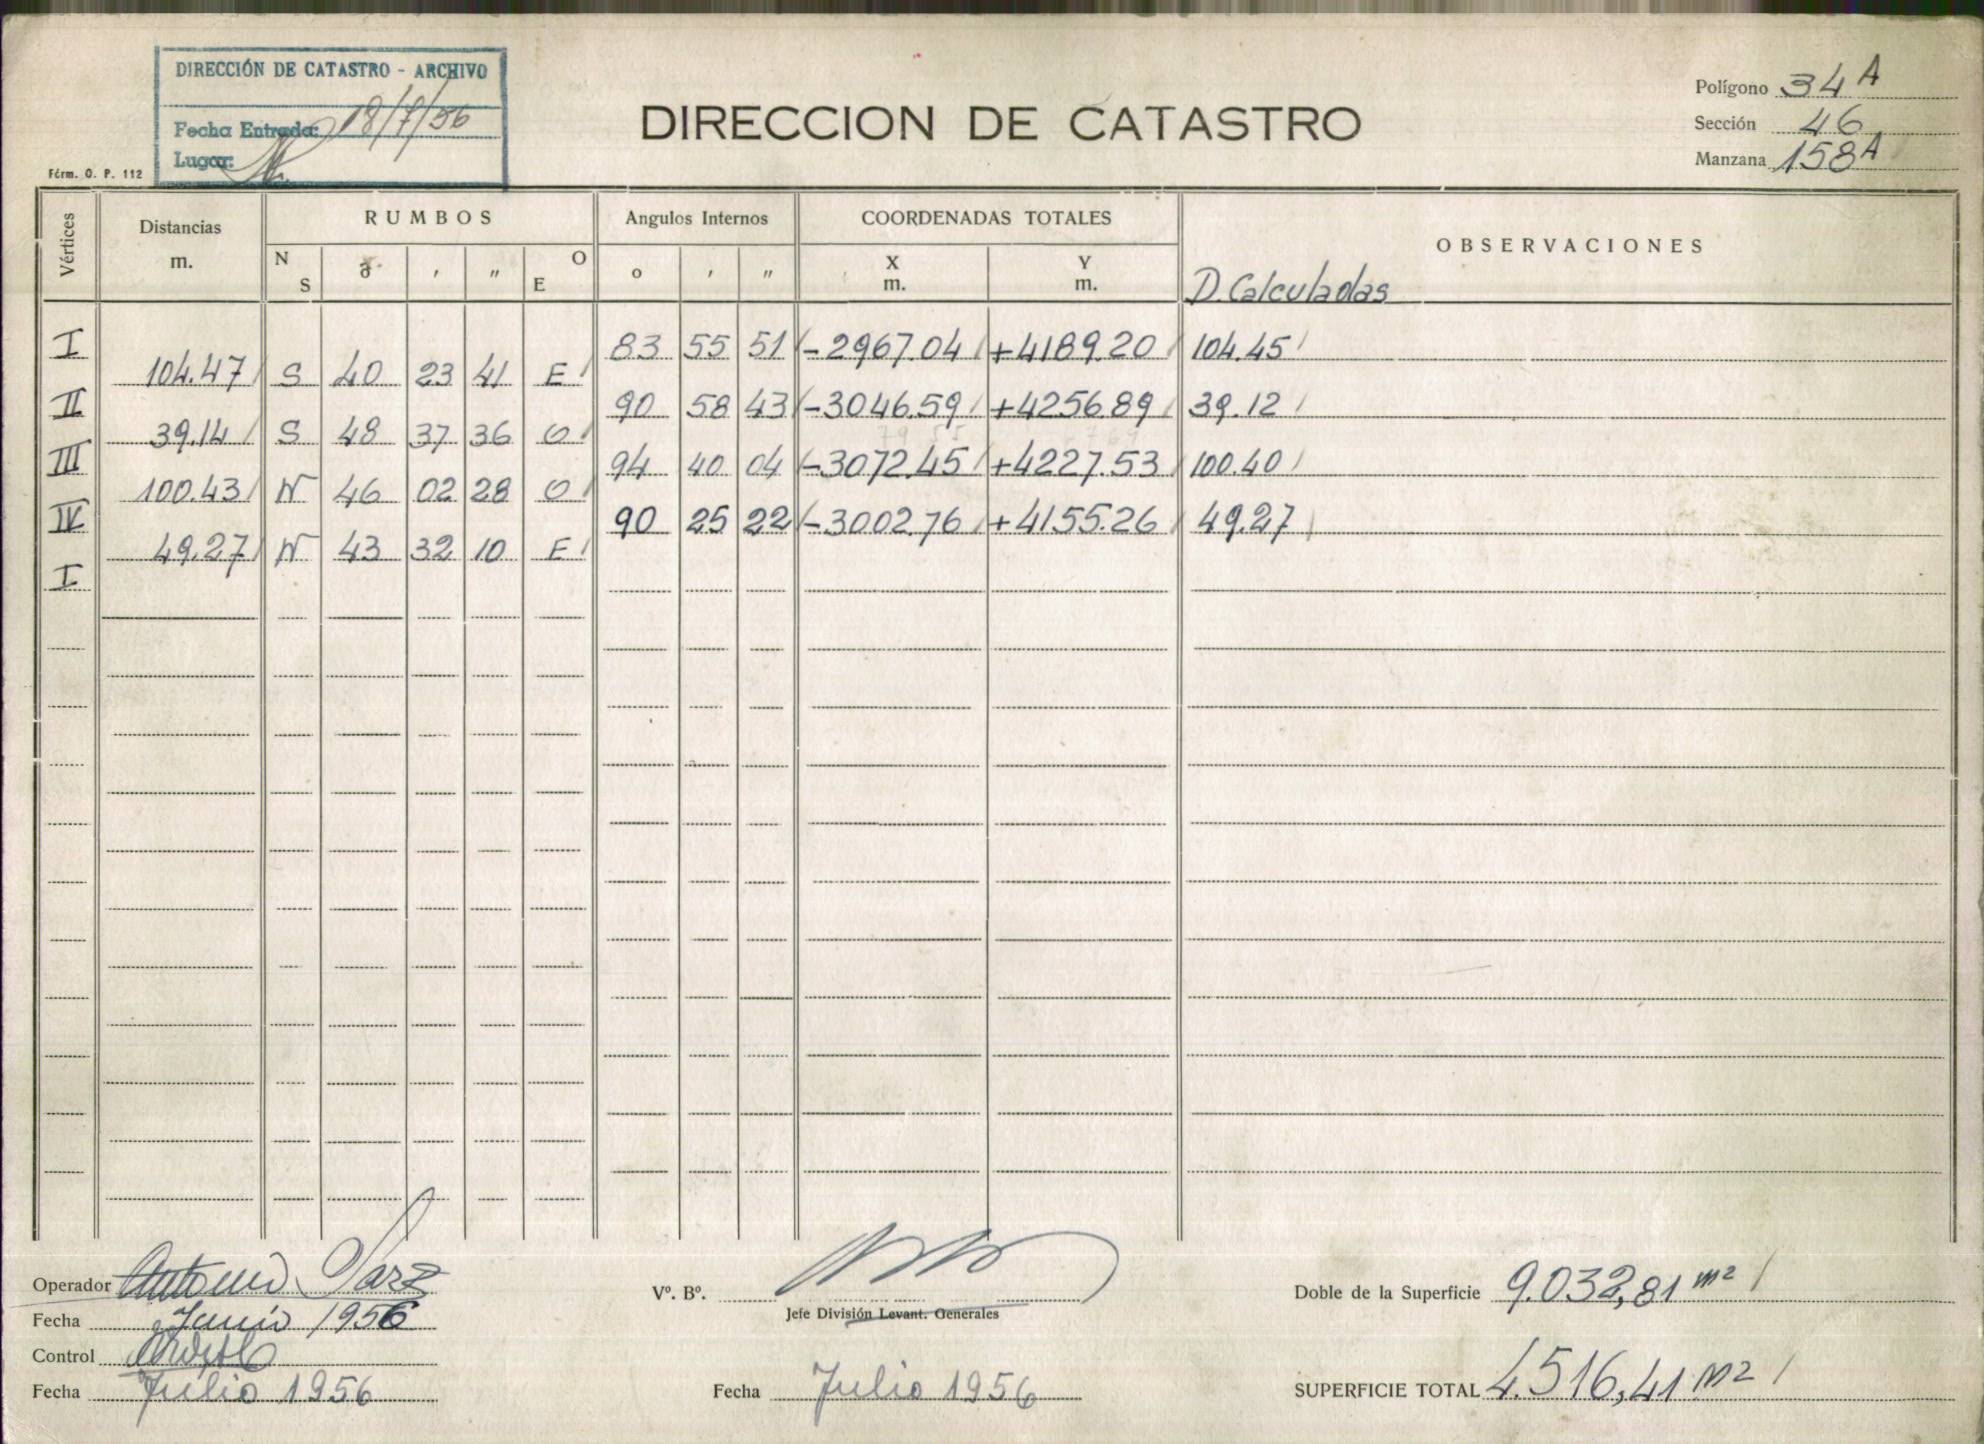 DIRECCIÓN DE CATASTRO - ARCHIVO
Fecha Entrada: 18/7/56
Lugar:
Fórm. O. P. 112
DIRECCION DE CATASTRO
Polígono 34A
Sección 46
Manzana 158A
Vértices Distancias m. RUMBOS Angulos Internos COORDENADAS TOTALES OBSERVACIONES
N S ° ' " O E ° ' " X m. Y m. D. Calculadas
I 83 55 51 -2967.04 +4189.20 104.45
104.47 S 40 23 41 E
II 90 58 43 -3046.59 +4256.89 39.12
39.14 S 48 37 36 O
III 94 40 04 -3072.45 +4227.53 100.40
100.43 N 46 02 28 O
IV 90 25 22 -3002.76 +4155.26 49.27
49.27 N 43 32 10 E
I
Operador Antonio
Fecha Junio 1956
Control
Fecha Julio 1956
Vº. Bº.
Jefe División Levant. Generales
Fecha Julio 1956
Doble de la Superficie 9.032,81 m2
SUPERFICIE TOTAL 4.516,41 m2